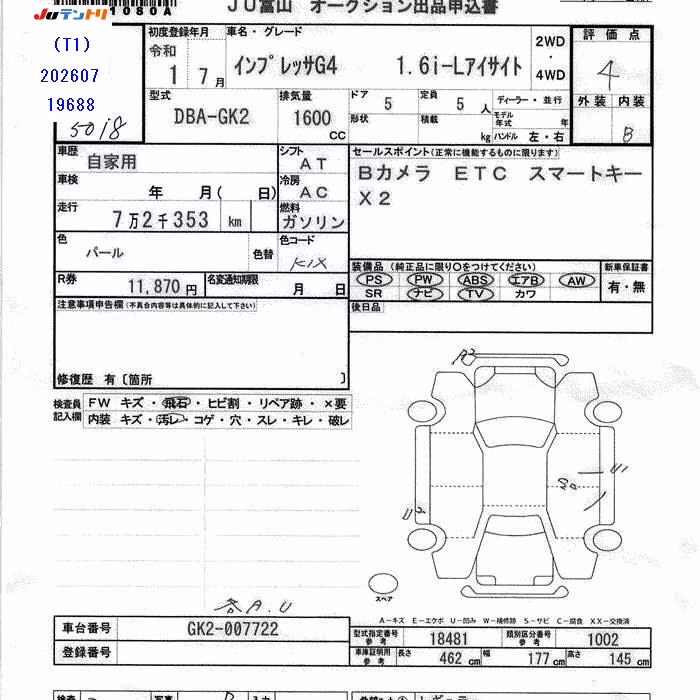 JUテントリ 1080A JU富山 オークション出品申込書
(T1)
202607
19688
5018
初度登録年月
令和
1 7月
車名・グレード
インプレッサG4 1.6i-Lアイサイト
2WD
・
4WD
評価点
4
外装 内装
B
型式
DBA-GK2
排気量
1600
CC
ドア 5
形状
定員 5 人
積載 kg
ディーラー・並行
モデル年式 年
ハンドル 左・右
車歴
自家用
シフト
AT
車検
年 月( 日)
冷房
AC
走行
7万2千353 km
燃料
ガソリン
色
パール
色替
色コード
K1X
R券
11,870円
名変通知期限
月 日
セールスポイント(正常に機能するものに限ります)
Bカメラ ETC スマートキー
X2
装備品 (純正品に限り○をつけてください)
PS PW ABS エアB AW
SR ナビ TV カワ
新車保証書
有・無
後日品
注意事項申告欄(不具合内容等は具体的に記入して下さい)
修復歴 有〔箇所 〕
検査員
記入欄
FW キズ・飛石・ヒビ割・リペア跡・×要
内装 キズ・汚レ・コゲ・穴・スレ・キレ・破レ
A2
U2
U1
スペア
各A.U
A-キズ E-エクボ U-凹み W-補修跡 S-サビ C-腐食 XX-交換済
車台番号
GK2-007722
登録番号
型式指定番号
参考
18481
類別区分番号
参考
1002
車庫証明用
参考
長さ 462 cm
幅 177 cm
高さ 145 cm